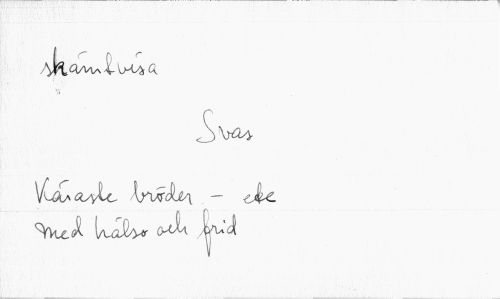 skämtvisa
Svar
Käraste bröder – etc
med hälso och frid